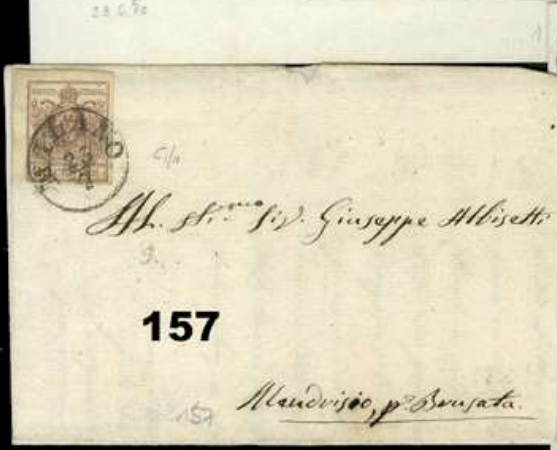 28 6 50
1
MILANO
All. Sti.mo Sig. Giuseppe Albisetti
157
157
Mendrisio, p. Brusata.